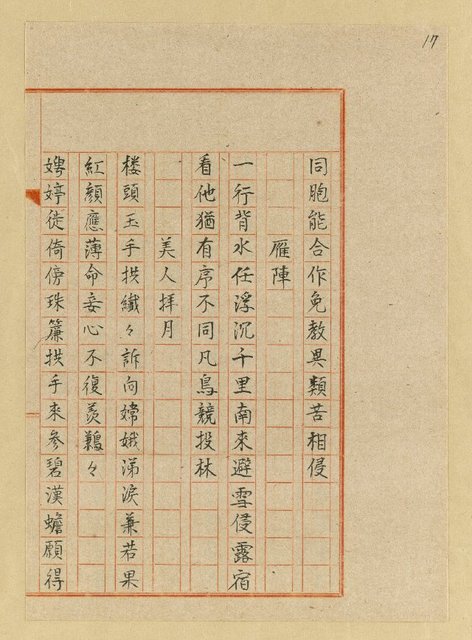 17
同胞能合作免教異類苦相侵
雁陣
一行背水任浮沉千里南來避雪侵露宿
看他猶有序不同凡鳥競投林
美人拜月
楼頭玉手拱纖々訴向嫦娥涕淚兼若果
紅顏應薄命妾心不復羨鶼々
娉婷徒倚傍珠簾拱手來參碧漢蟾願得